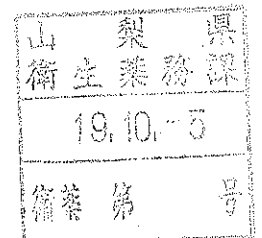 山梨県
衛生薬務課
19.10.-5
衛薬第 号